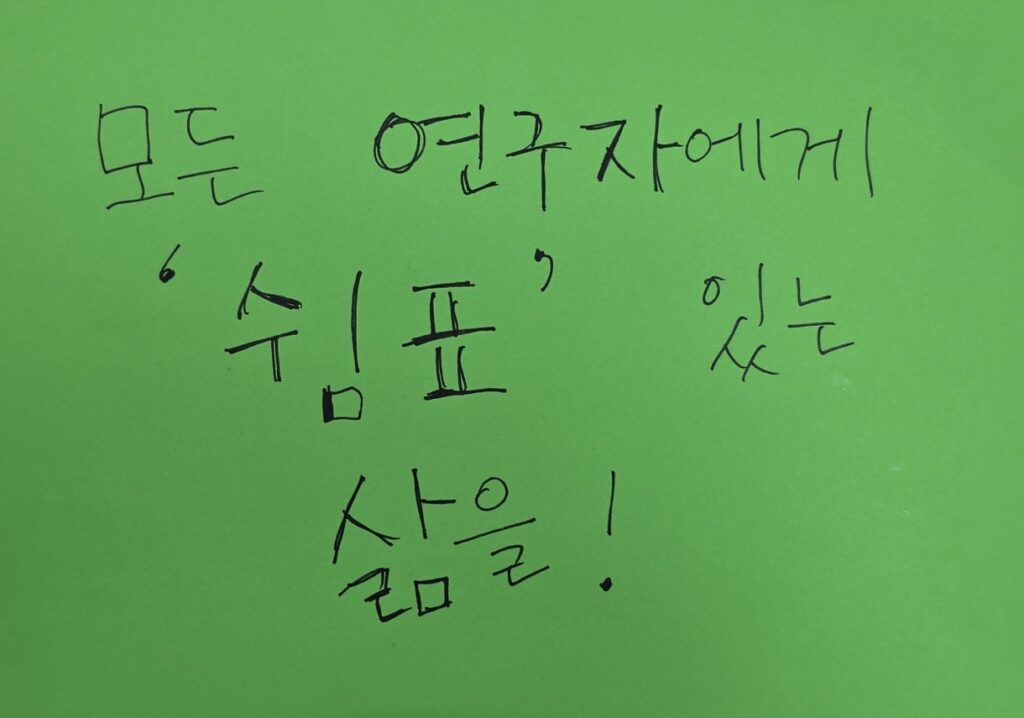 모든 연구자에게
‘쉼표’ 있는
삶을!